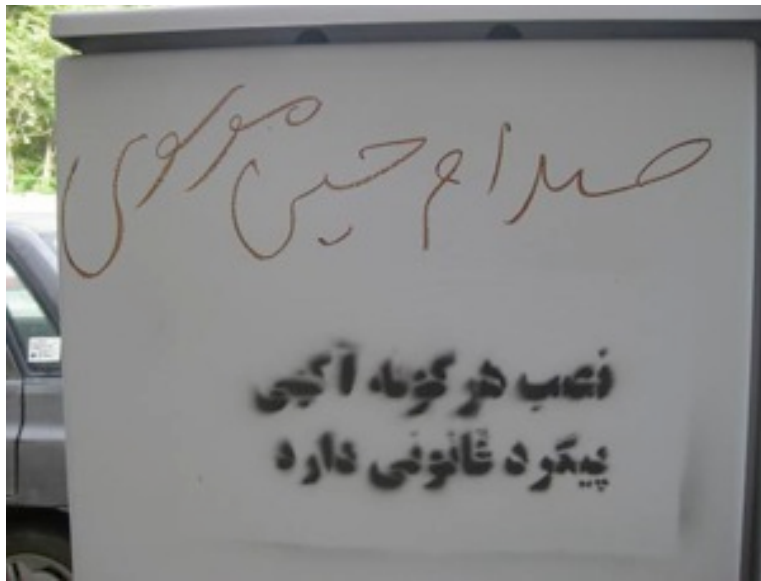 صدام حسین موسوی
نصب هر گونه آگهی
پیگرد قانونی دارد